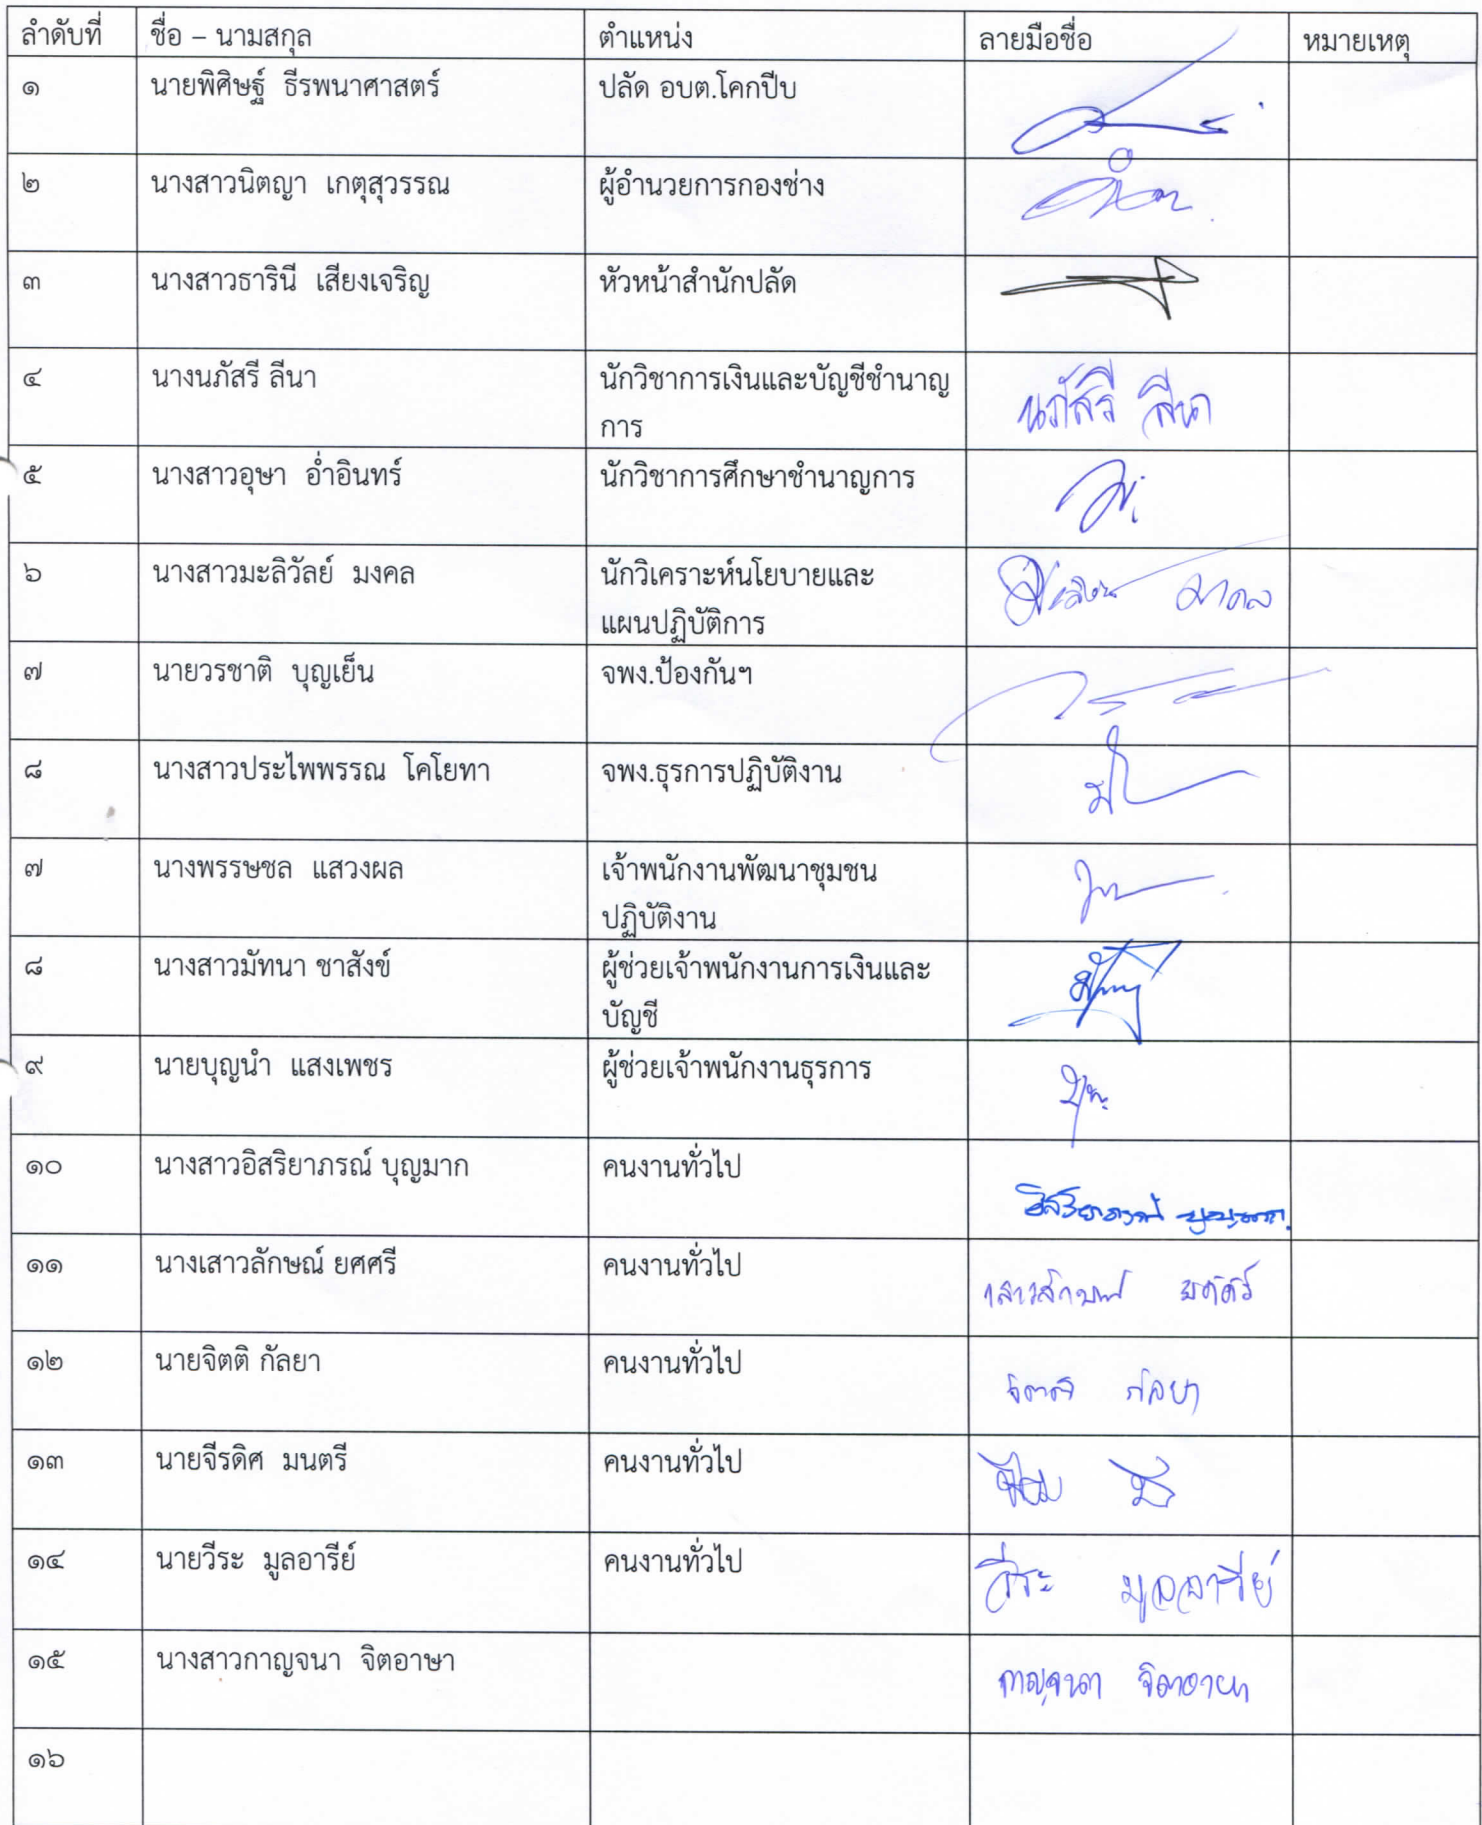 ลำดับที่ ชื่อ – นามสกุล ตำแหน่ง ลายมือชื่อ หมายเหตุ
๑ นายพิศิษฐ์ ธีรพนาศาสตร์ ปลัด อบต.โคกปีบ
๒ นางสาวนิตญา เกตุสุวรรณ ผู้อำนวยการกองช่าง
๓ นางสาวธารินี เสียงเจริญ หัวหน้าสำนักปลัด
๔ นางนภัสรี ลีนา นักวิชาการเงินและบัญชีชำนาญ นภัสรี ลีนา
การ
๕ นางสาวอุษา อ่ำอินทร์ นักวิชาการศึกษาชำนาญการ
๖ นางสาวมะลิวัลย์ มงคล นักวิเคราะห์นโยบายและ มะลิวัลย์ มงคล
แผนปฏิบัติการ
๗ นายวรชาติ บุญเย็น จพง.ป้องกันฯ
๘ นางสาวประไพพรรณ โคโยทา จพง.ธุรการปฏิบัติงาน
๗ นางพรรษชล แสวงผล เจ้าพนักงานพัฒนาชุมชน
ปฏิบัติงาน
๘ นางสาวมัทนา ชาสังข์ ผู้ช่วยเจ้าพนักงานการเงินและ
บัญชี
๙ นายบุญนำ แสงเพชร ผู้ช่วยเจ้าพนักงานธุรการ
๑๐ นางสาวอิสริยาภรณ์ บุญมาก คนงานทั่วไป อิสริยาภรณ์ บุญมาก
๑๑ นางเสาวลักษณ์ ยศศรี คนงานทั่วไป เสาวลักษณ์ ยศศรี
๑๒ นายจิตติ กัลยา คนงานทั่วไป จิตติ กัลยา
๑๓ นายจีรดิศ มนตรี คนงานทั่วไป
๑๔ นายวีระ มูลอารีย์ คนงานทั่วไป วีระ มูลอารีย์
๑๕ นางสาวกาญจนา จิตอาษา กาญจนา จิตอาษา
๑๖